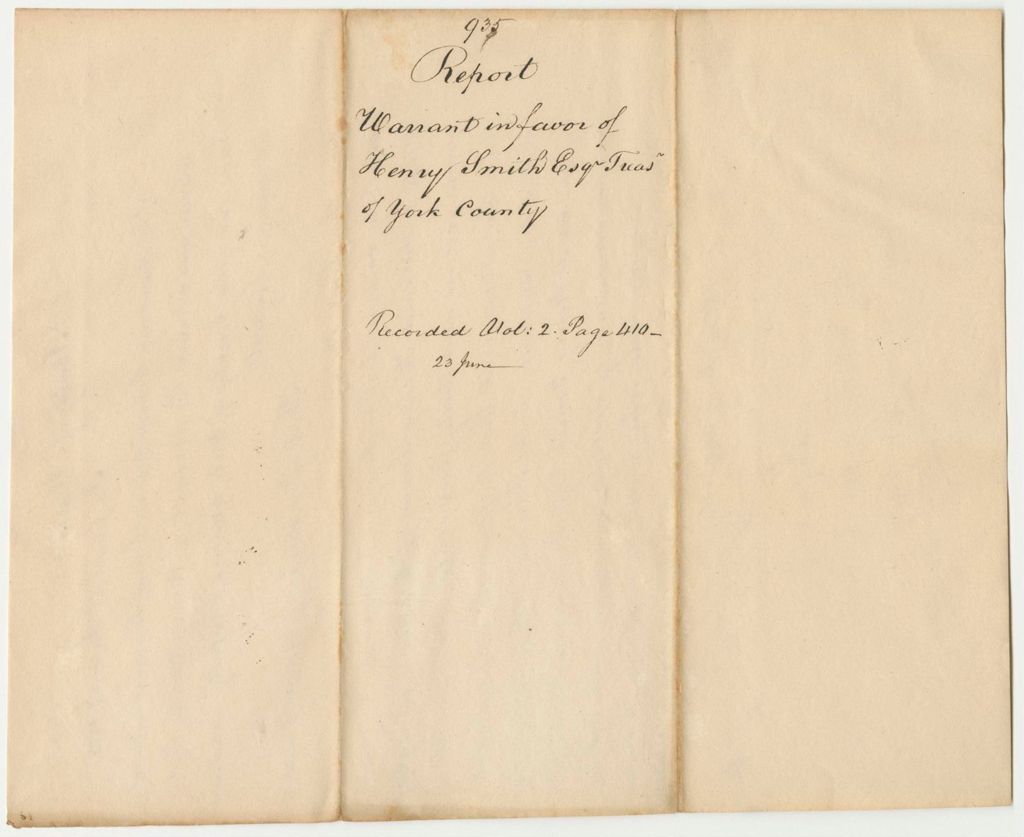 935
Report
Warrant in favor of
Henry Smith Esqr Treasr
of York County
Recorded Vol: 2. Page 410-
23 June